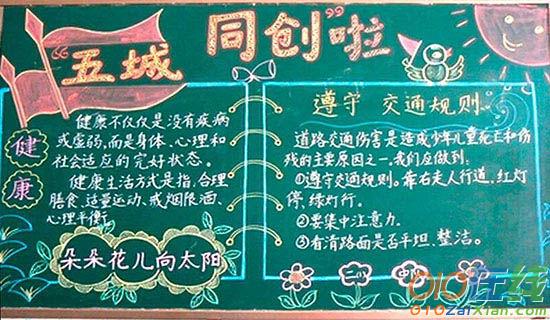 “五城同创”啦
健康
健康不仅仅是没有疾病
或虚弱,而是身体、心理和
社会适应的完好状态。
健康生活方式是指,合理
膳食、适量运动、戒烟限酒、
心理平衡。
朵朵花儿向太阳
遵守 交通规则。
道路交通伤害是造成少年儿童死亡和伤
残的主要原因之一。我们应做到:
①遵守交通规则。靠右走人行道,红灯
停,绿灯行。
②要集中注意力.
③看清路面是否平坦、整洁。
010在线
010zaixian.com